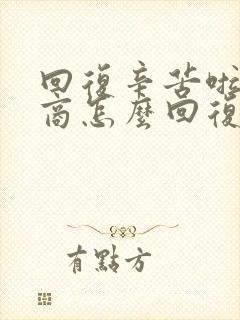 回復辛苦啦
商怎麼回復
有點方